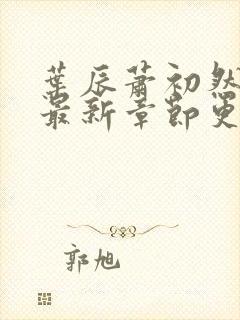 葉辰蕭初然
最新章節更
郭旭